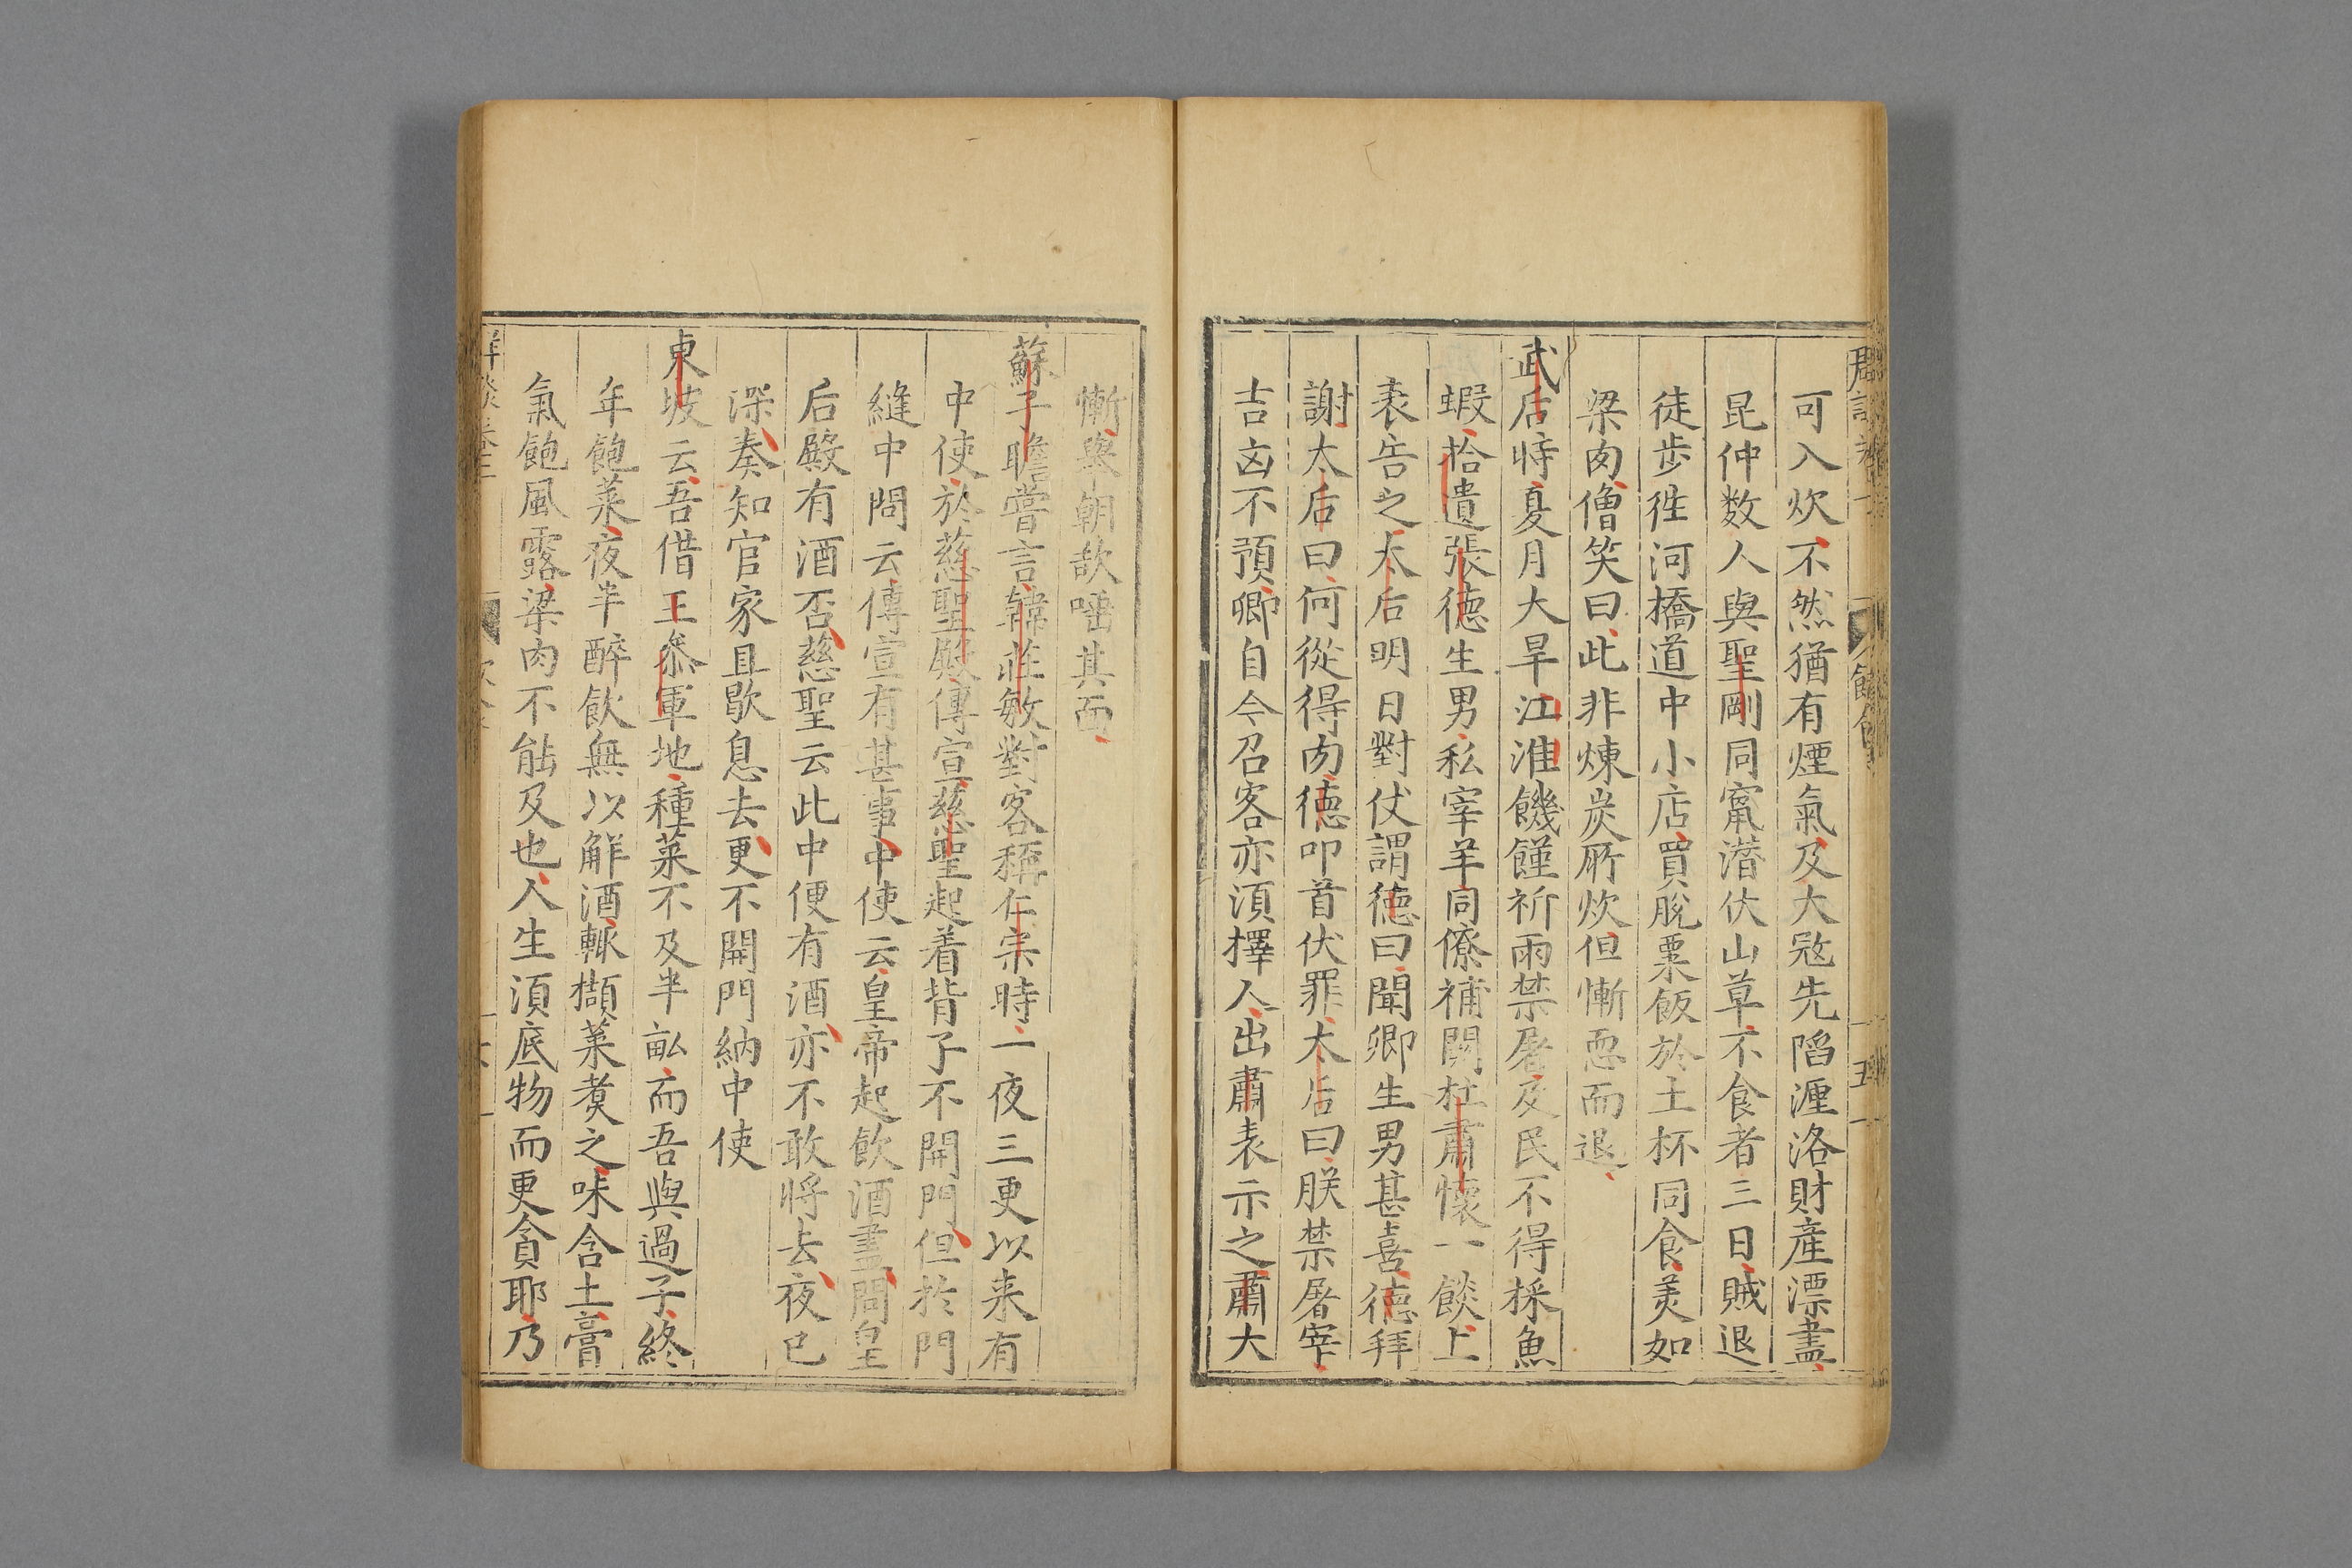 可入炊不然猶有煙氣及大寇先陷瀍洛財產漂盡
昆仲数人與聖剛同竄潜伏山草不食者三日賊退
徒歩徃河橋道中小店買脫粟飯於土杯同食美如
梁肉僧笑曰此非煉炭所炊但慚恧而退
武后時夏月大旱江淮饑饉祈雨禁屠及民不得採魚
蝦拾遺張德生男私宰羊同僚補闕杜肅懷一餤上
表告之太后明日對仗謂德曰聞卿生男甚喜德拜
謝太后曰何從得肉德叩首伏罪太后曰朕禁屠宰
吉凶不預卿自今召客亦湏擇人出肅表示之肅大
慚舉朝欲唾其面
蘇子瞻嘗言韓莊敏對客稱仁宗時一夜三更以来有
中使於慈聖殿傳宣慈聖起着背子不開門但於門
縫中問云傳宣有甚事中使云皇帝起飲酒盡問皇
后殿有酒否慈聖云此中便有酒亦不敢將去夜已
深奏知官家且歇息去更不開門納中使
東坡云吾借王叅軍地種菜不及半畝而吾與過子終
年飽菜夜半醉飲無以觧酒輙擷菜煑之味含土膏
氣飽風露梁肉不能及也人生湏底物而更貪耶乃